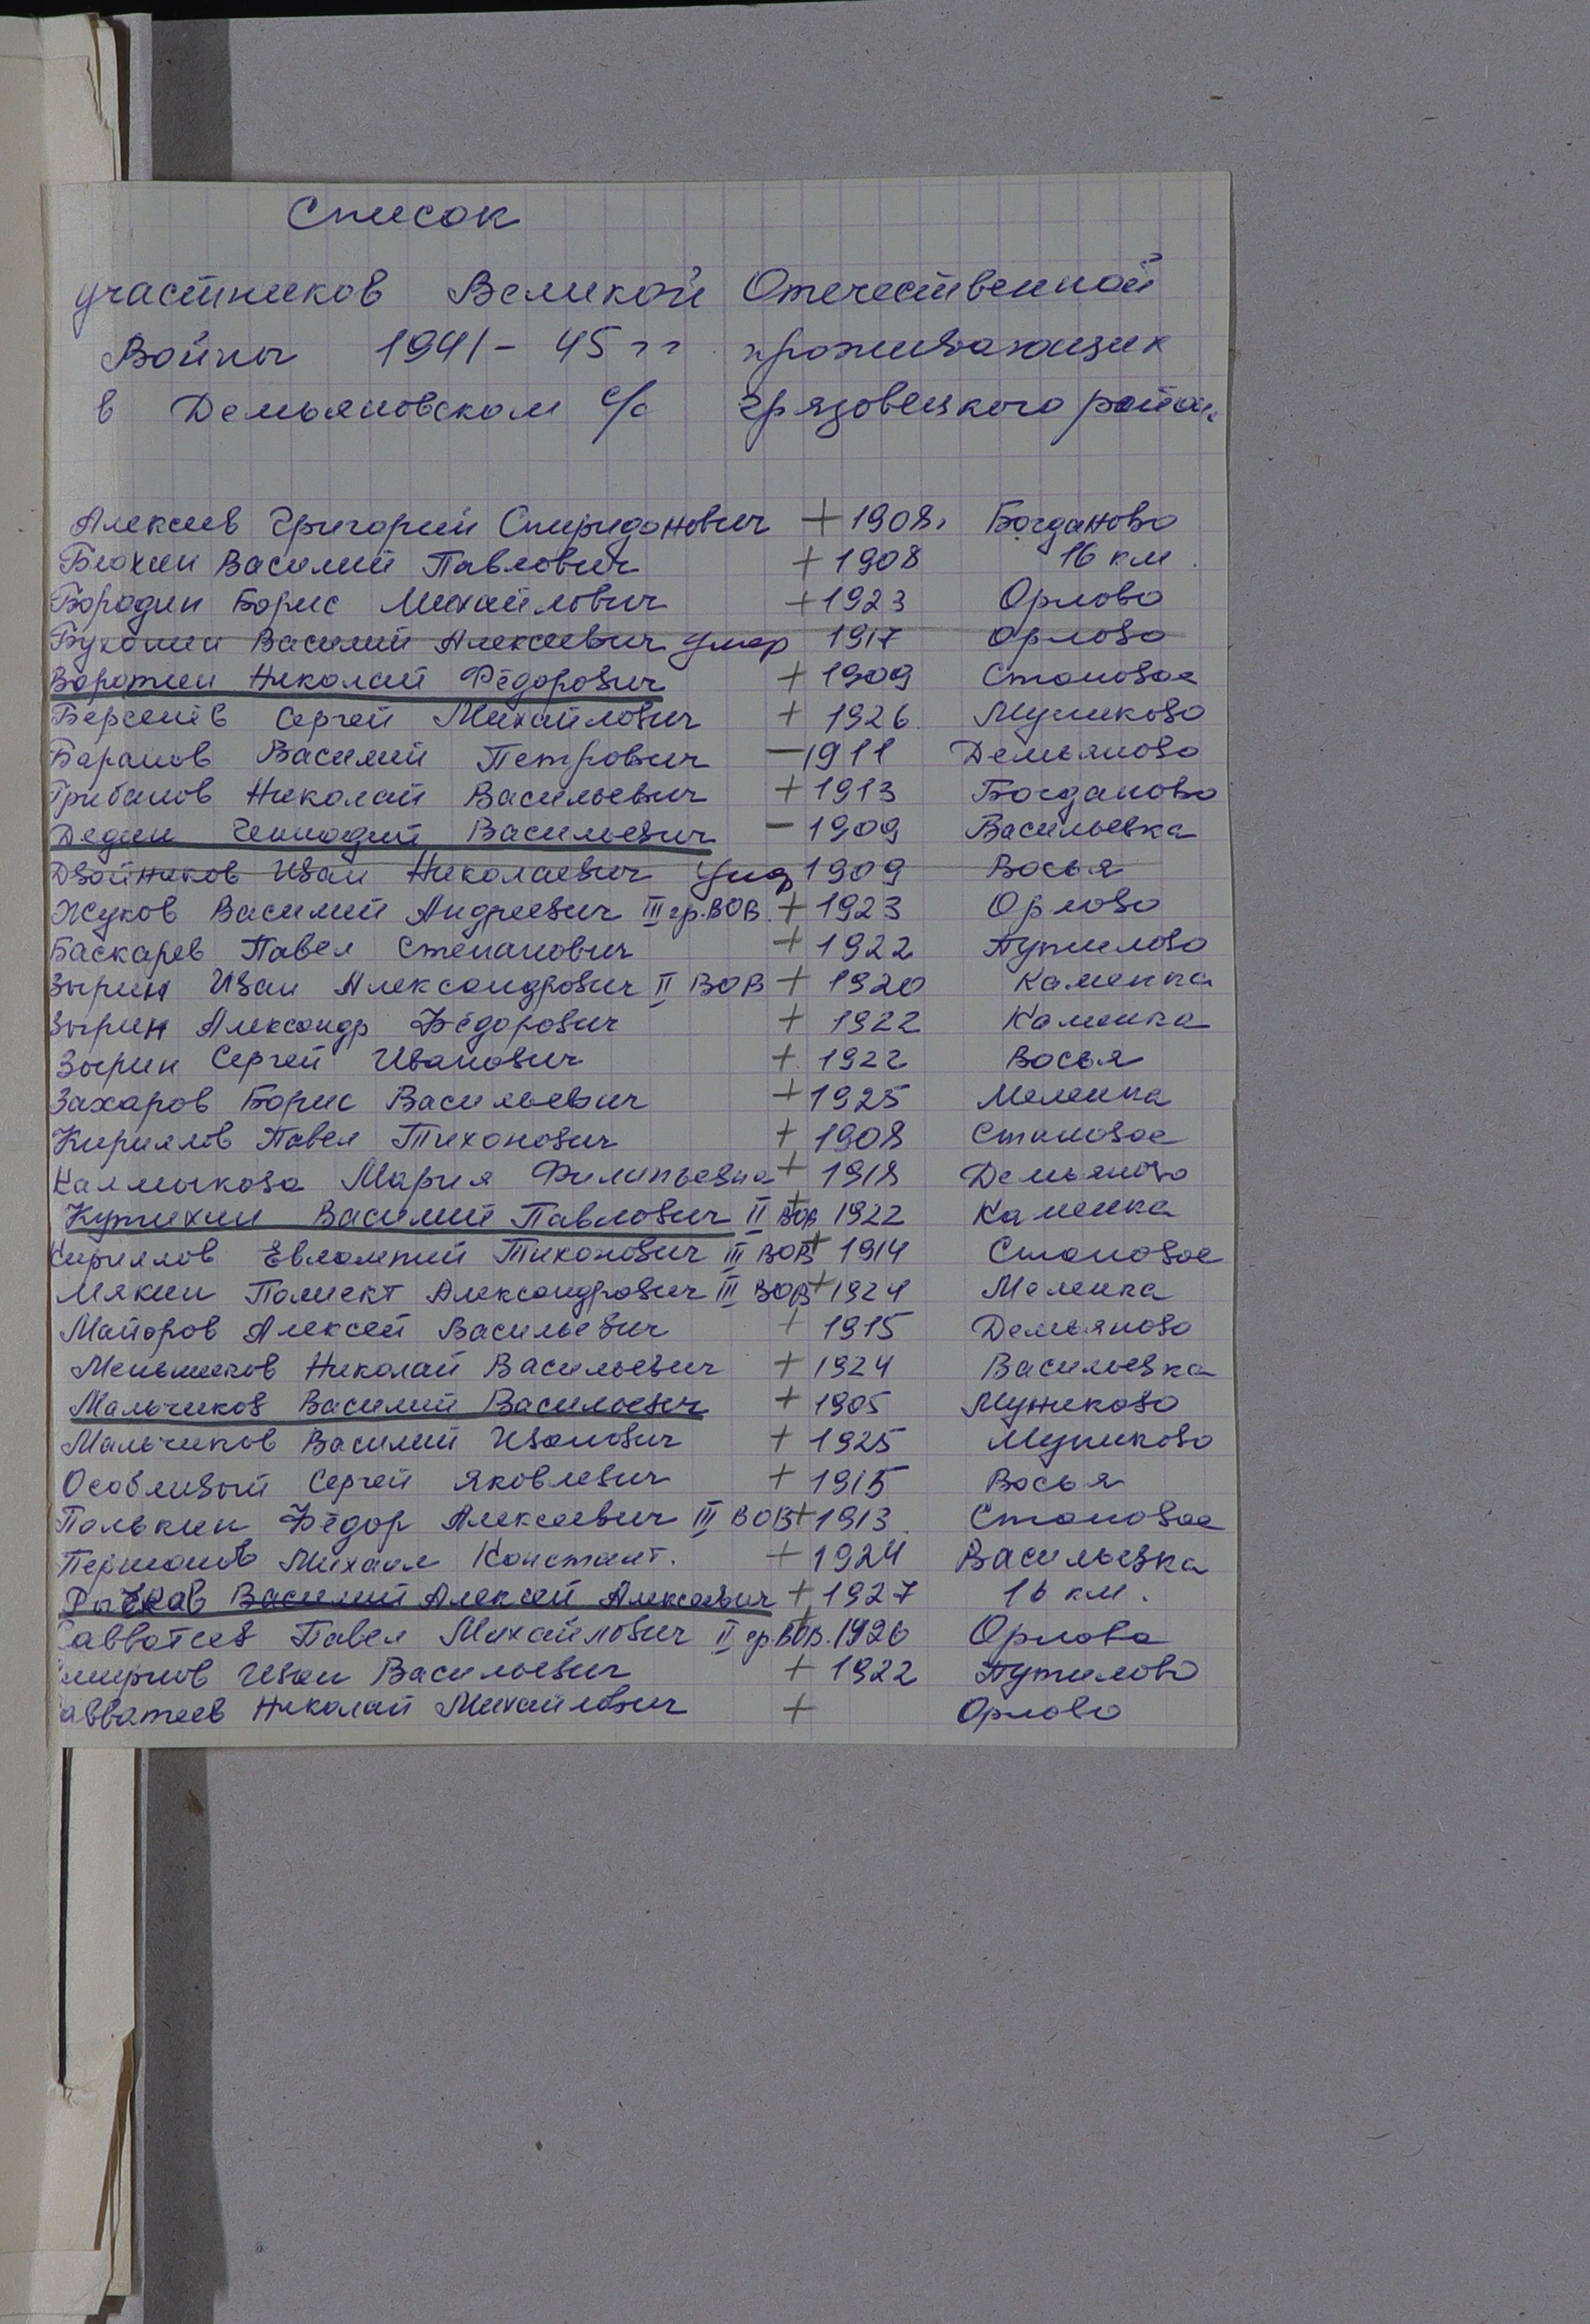 Список
участников Великой Отечественной
Войны 1941-45 гг. проживающих
в Демьяновском с/с Грязовецкого район
Алексеев Григорий Спиридонович + 1908. Богданово
Блохин Василий Павлович + 1908 16 км.
Бородин Борис Михайлович + 1923 Орлово
Василий Алексеевич умер 1917 Орлово
Воротин Николай Фёдорович + 1909 Становое
Берсенёв Сергей Михайлович + 1926. Мужиково
Баранов Василий Петрович - 1911 Демьяново
Грибанов Николай Васильевич + 1913 Богданово
Дедин Геннадий Васильевич - 1909 Васильевка
Двойников Иван Николаевич умер 1909 Восья
Жуков Василий Андреевич III гр. ВОВ. + 1923 Орлово
Баскарев Павел Степанович + 1922 Путилово
Зырин Иван Александрович II ВОВ + 1920 Каменка
Зырин Александр Фёдорович + 1922 Каменка
Зырин Сергей Иванович + 1922 Восья
Захаров Борис Васильевич + 1925 Меленка
Кириллов Павел Тихонович + 1908 Становое
Калмыкова Мария Филипьевна + 1918 Демьяново
Кутихин Василий Павлович II ВОВ + 1922 Каменка
Кириллов Евлампий Тихонович III ВОВ + 1914 Становое
Мякин Александрович III ВОВ + 1924 Меленка
Майоров Алексей Васильевич + 1915 Демьяново
Меньшиков Николай Васильевич + 1924 Васильевка
Мальчиков Василий Васильевич + 1905 Мужиково
Мальчиков Василий Иванович + 1925 Мужиково
Особливый Сергей Яковлевич + 1915 Восья
Полькин Фёдор Алексеевич III ВОВ + 1913. Становое
Михаил Констант. + 1924 Васильевка
Рычков Василий Алексей Алексеевич + 1927 16 км.
Савватеев Павел Михайлович II гр. ВОВ. + 1926 Орлово
Смирнов Иван Васильевич + 1922 Путилово
Савватеев Николай Михайлович + Орлово